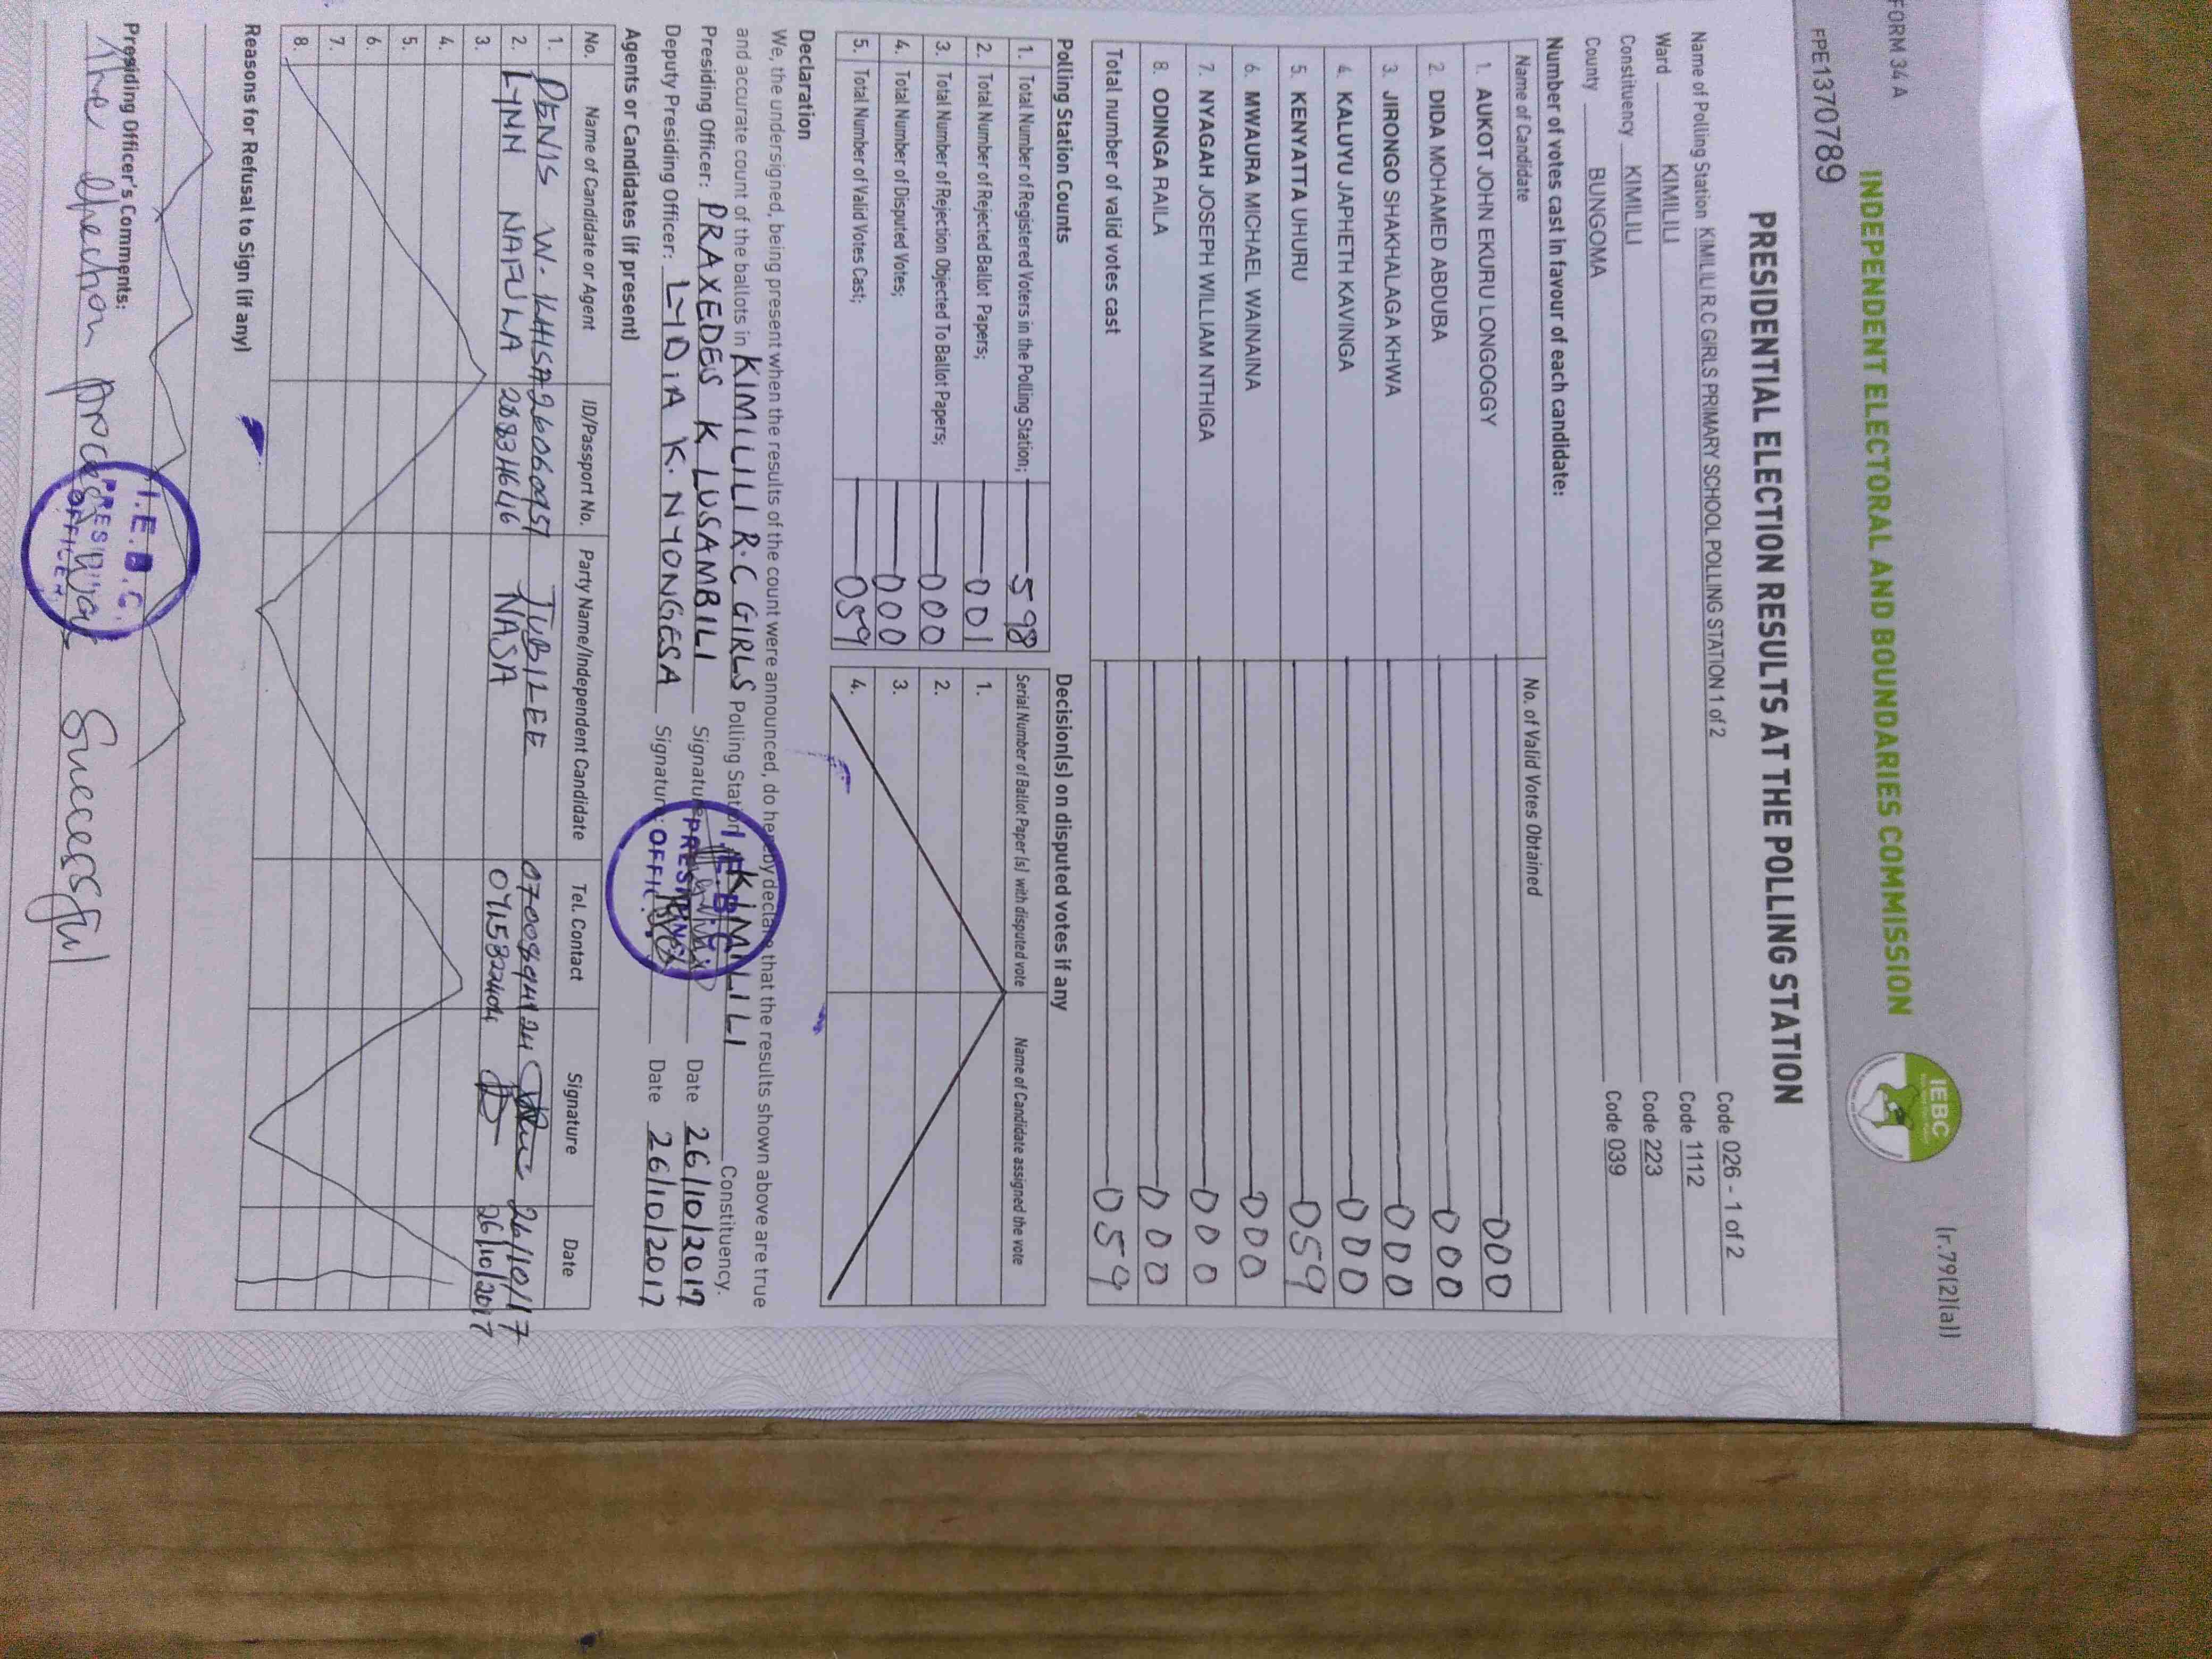 FORM 34 A
(r.79(2)(a))
INDEPENDENT ELECTORAL AND BOUNDARIES COMMISSION
IEBC
FPE1370789
PRESIDENTIAL ELECTION RESULTS AT THE POLLING STATION
Name of Polling Station KIMILILI R C GIRLS PRIMARY SCHOOL POLLING STATION 1 of 2 Code 026 - 1 of 2
Ward KIMILILI Code 1112
Constituency KIMILILI Code 223
County BUNGOMA Code 039
Number of votes cast in favour of each candidate:
Name of Candidate No. of Valid Votes Obtained
1. AUKOT JOHN EKURU LONGOGGY 000
2. DIDA MOHAMED ABDUBA 000
3. JIRONGO SHAKHALAGA KHWA 000
4. KALUYU JAPHETH KAVINGA 000
5. KENYATTA UHURU 059
6. MWAURA MICHAEL WAINAINA 000
7. NYAGAH JOSEPH WILLIAM NTHIGA 000
8. ODINGA RAILA 000
Total number of valid votes cast 059
Polling Station Counts
1. Total Number of Registered Voters in the Polling Station; 598
2. Total Number of Rejected Ballot Papers; 001
3. Total Number of Rejection Objected To Ballot Papers; 000
4. Total Number of Disputed Votes; 000
5. Total Number of Valid Votes Cast; 059
Decision(s) on disputed votes if any
Serial Number of Ballot Paper (s) with disputed vote Name of Candidate assigned the vote
1.
2.
3.
4.
Declaration
We, the undersigned, being present when the results of the count were announced, do hereby declare that the results shown above are true
and accurate count of the ballots in KIMILILI R.C GIRLS Polling Station, KIMILILI Constituency.
Presiding Officer: PRAXEDES K LUSAMBILI Signature: Date 26/10/2017
Deputy Presiding Officer: LYDIA K. NYONGESA Signature: Date 26/10/2017
I.E.B.C PRESIDING OFFICER
Agents or Candidates (if present)
No. Name of Candidate or Agent ID/Passport No. Party Name/Independent Candidate Tel. Contact Signature Date
1. DENIS W. KHISA 26060951 JUBILEE 0700894124 26/10/17
2. LYNN NAFULA 28834646 NASA 0715822404 26/10/2017
3.
4.
5.
6.
7.
8.
Reasons for Refusal to Sign (if any)
Presiding Officer's Comments:
The election process was successful
I.E.B.C. PRESIDING OFFICER